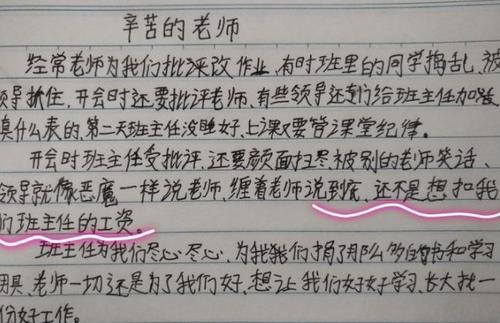 辛苦的老师
经常老师为我们批评改作业,有时班里的同学捣乱,被
领导抓住,开会时还要批评老师,有些领导还专门给班主任加班
填什么表的,第二天班主任没睡好,上课又要管课堂纪律。
开会时班主任受批评,还要颜面扫尽被别的老师笑话、
领导就像恶魔一样说老师,缠着老师说到底,还不是想扣我
们班主任的工资。
班主任为我们尽心尽心,为我我们捐了那么多的书和学习
用具,老师一切还是为了我们好,想让我们好好学习,长大找一
份好工作。